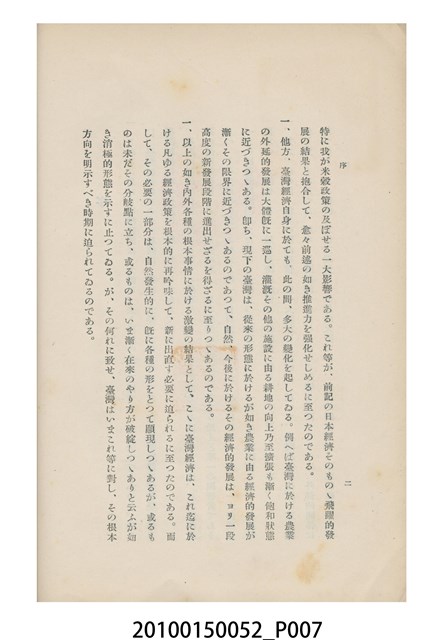 序
二
特に我が米穀政策の及ぼせる一大影響である。これ等が、前記の日本經濟そのものゝ飛躍的發
展の結果と抱合して、愈々前述の如き推進力を強化せしめるに至つたのである。
一、他方、臺灣經濟自身に於ても、此の間、多大の變化を起してゐる。例へば臺灣に於ける農業
の外延的發展は大體旣に一巡し、灌漑その他の施設に由る耕地の向上乃至擴張も漸く飽和狀態
に近づきつゝある。卽ち、現下の臺灣は、從來の形態に於けるが如き農業に由る經濟的發展が
漸くその限界に近づきつゝあるのであつて、自然、今後に於けるその經濟的發展は、ヨリ一段
高度の新發展段階に進出せざるを得ざるに至りつゝあるのである。
一、以上の如き內外各種の根本事情に於ける激變の結果として、こゝに臺灣經濟は、これ迄に於
ける凡ゆる經濟政策を根本的に再吟味して、新に出直す必要に迫られるに至つたのである。而
して、その必要の一部分は、自然發生的に、旣に各種の形をとつて顯現しつゝあるが、或るも
のは未だその分岐點に立ち、或るものは、いま漸く在來のやり方が破綻しつゝありと云ふが如
き消極的形態を示すに止つてゐる。が、その何れに致せ、臺灣はいまこれ等に對し、その根本
方向を明示すべき時期に迫られてゐるのである。
20100150052_P007